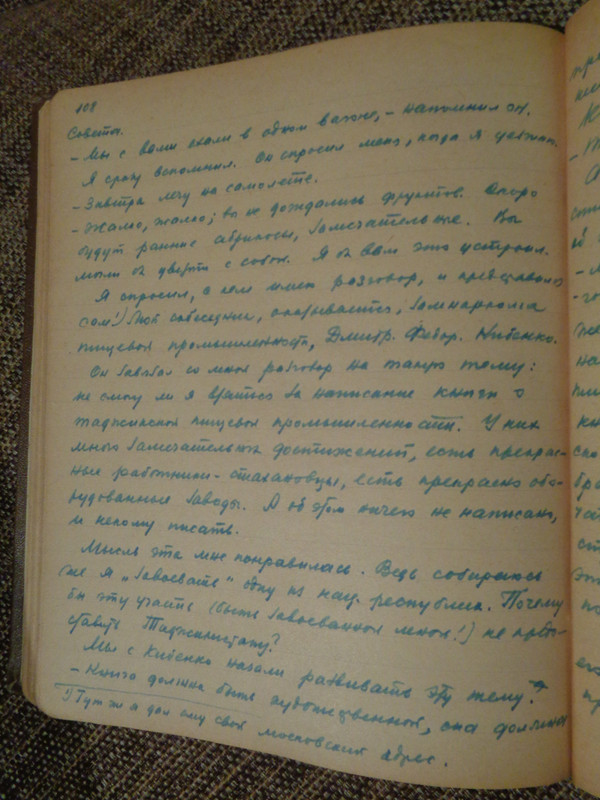 108
Совета.
– Мы с Вами ехали в одном вагоне, – напомнил он.
Я сразу вспомнил. Он спросил меня, когда я уезжаю.
– Завтра лечу на самолете.
– Жалко, жалко; вы не дождались фруктов. Скоро
будут ранние абрикосы, замечательные. Вы
могли бы увезти с собой. Я бы вам это устроил.
Я спросил, с кем имею разговор, и представился
сам.¹) Мой собеседник, оказывается, замнаркома
пищевой промышленности, Дмитр. Федор. Кибенко.
Он завязал со мной разговор на такую тему:
не смогу ли я взяться за написание книги о
таджикской пищевой промышленности. У них
много замечательных достижений, есть прекрас-
ные работники-стахановцы, есть прекрасно обо-
рудованные заводы. А об этом ничего не написано,
и некому писать.
Мысль эта мне понравилась. Ведь собираюсь
же я „завоевать" одну из нац. республик. Почему
бы эту участь (быть завоеванной мною!) не предо-
ставить Таджикистану?
Мы с Кибенко начали развивать эту тему.
– Книга должна быть художественной, она должна
¹) Тут же я дал ему свой московский адрес.